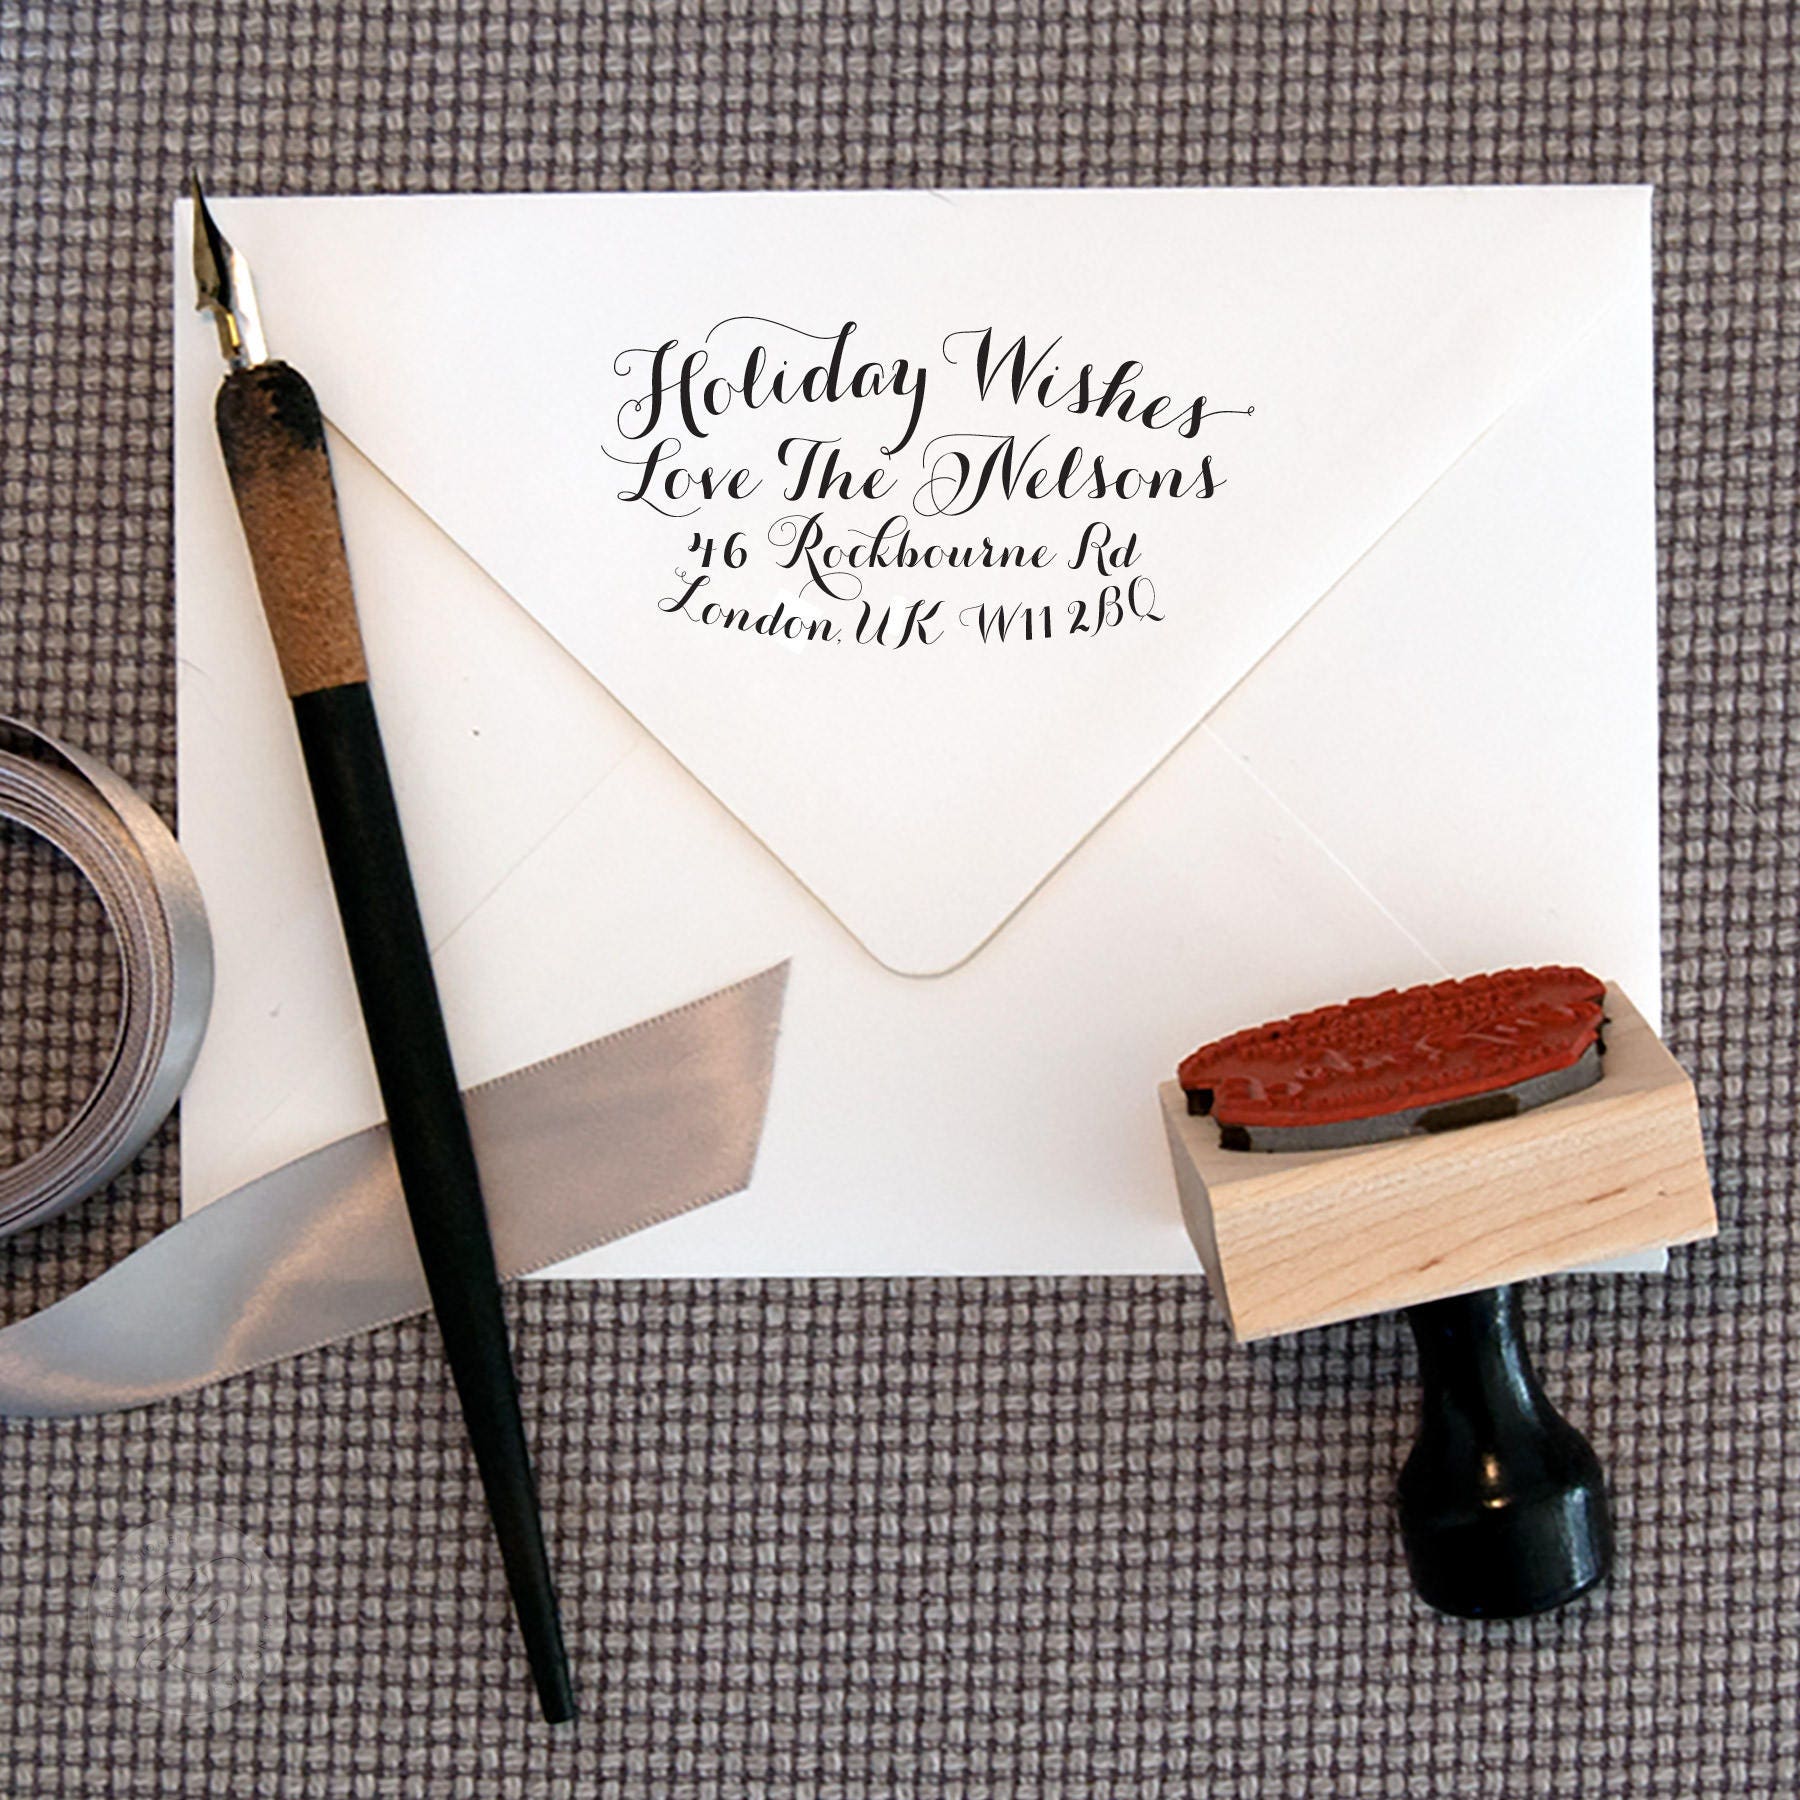 Holiday Wishes
Love The Nelsons
46 Rockbourne Rd
London, UK W11 2BQ